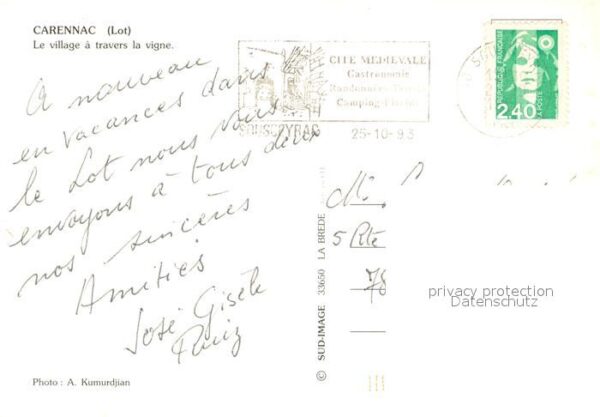 CARENNAC (Lot)
Le village à travers la vigne.
CITE MEDIEVALE
Gastronomie
Camping
SOUSCEYRAC
25-10-93
REPUBLIQUE FRANÇAISE
2,40
LA POSTE
A nouveau
en vacances dans
le Lot nous vous
envoyons à tous deux
nos sincères
Amitiés
José Gisèle
Ruiz
Photo : A. Kumurdjian
© SUD-IMAGE 33650 LA BREDE
5 Rte
78
privacy protection
Datenschutz